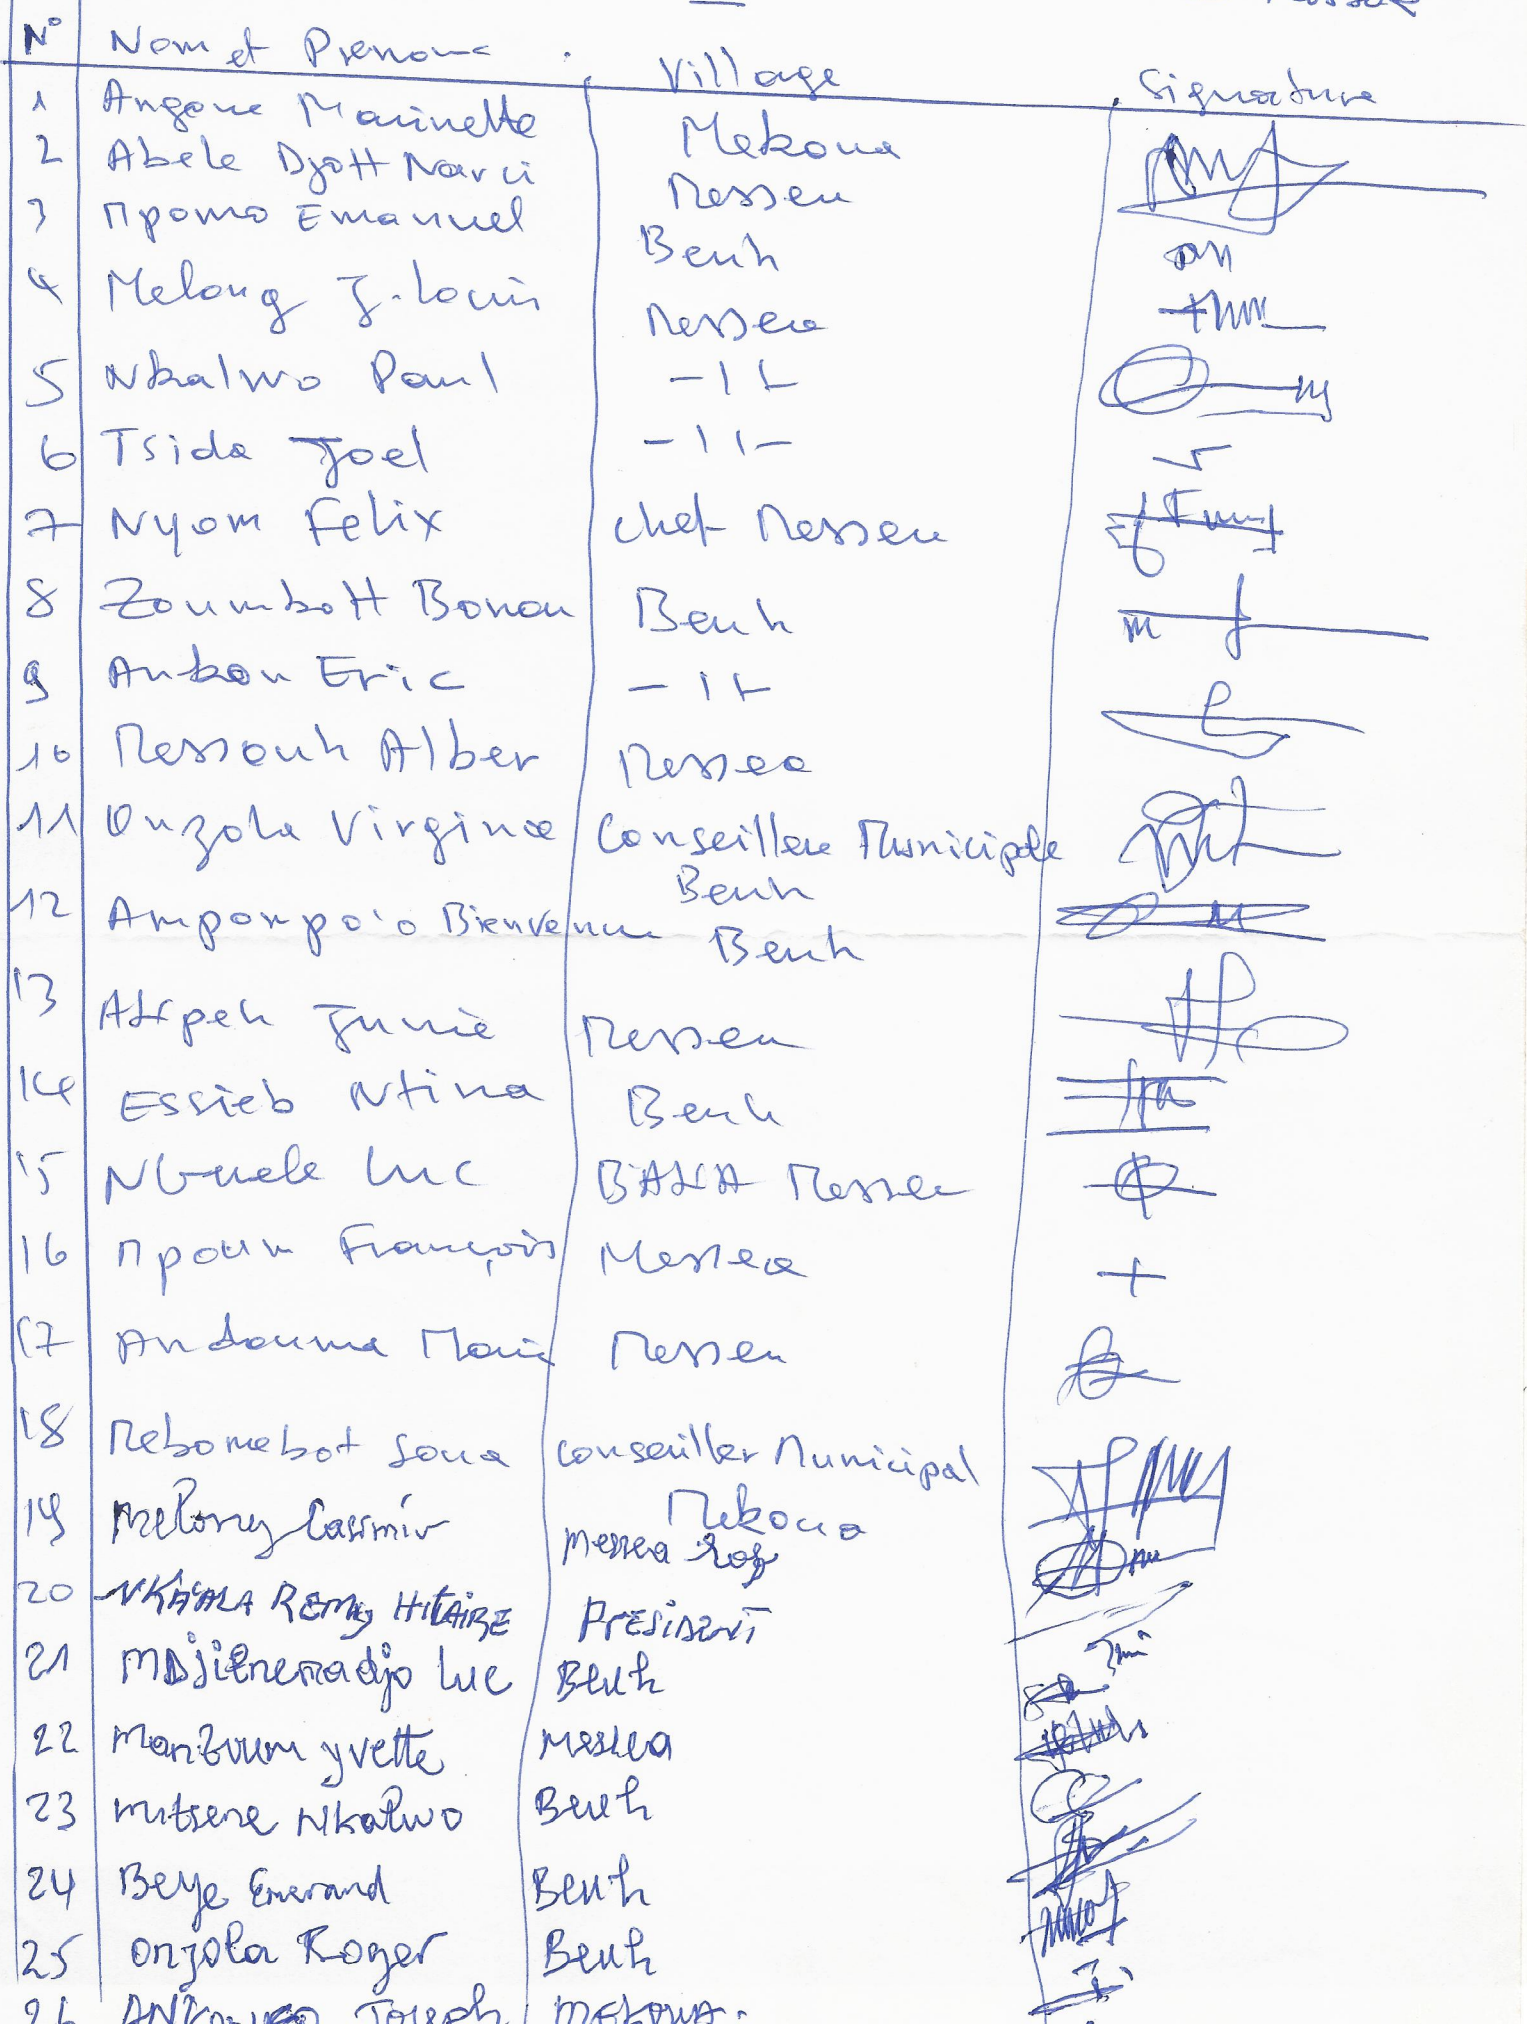 N° Nom et Prenom Village Signature
1 Angoue Marinette Mekoua
2 Abele Djott Narci Messea
3 Mpomo Emanuel Benh
4 Melong J. Louis Messea
5 Nkalwo Paul -11-
6 Tsida Joel -11-
7 Nyom Felix chef Messea
8 Zoumbott Bonou Benh
9 Ankon Eric -11-
10 Messouh Alber Messea
11 Onzola Virginie Conseillere Municipale
Benh
12 Ampompo'o Bienvenue Benh
13 Junie Messea
14 Essieb Ntina Benh
15 Luc Messea
16 Mpouh François Messea
17 Andouma Marie Messea
18 Mebomebot Sona conseiller Municipal
Mekoua
19 Melong Casimir Messea
20 REMY HILAIRE PRESIDENT
21 Luc Benh
22 yvette Messea
23 mutsene Nkalwo Benh
24 Beye Emerand Benh
25 onjola Roger Benh
26 Joseph MEKOUA.